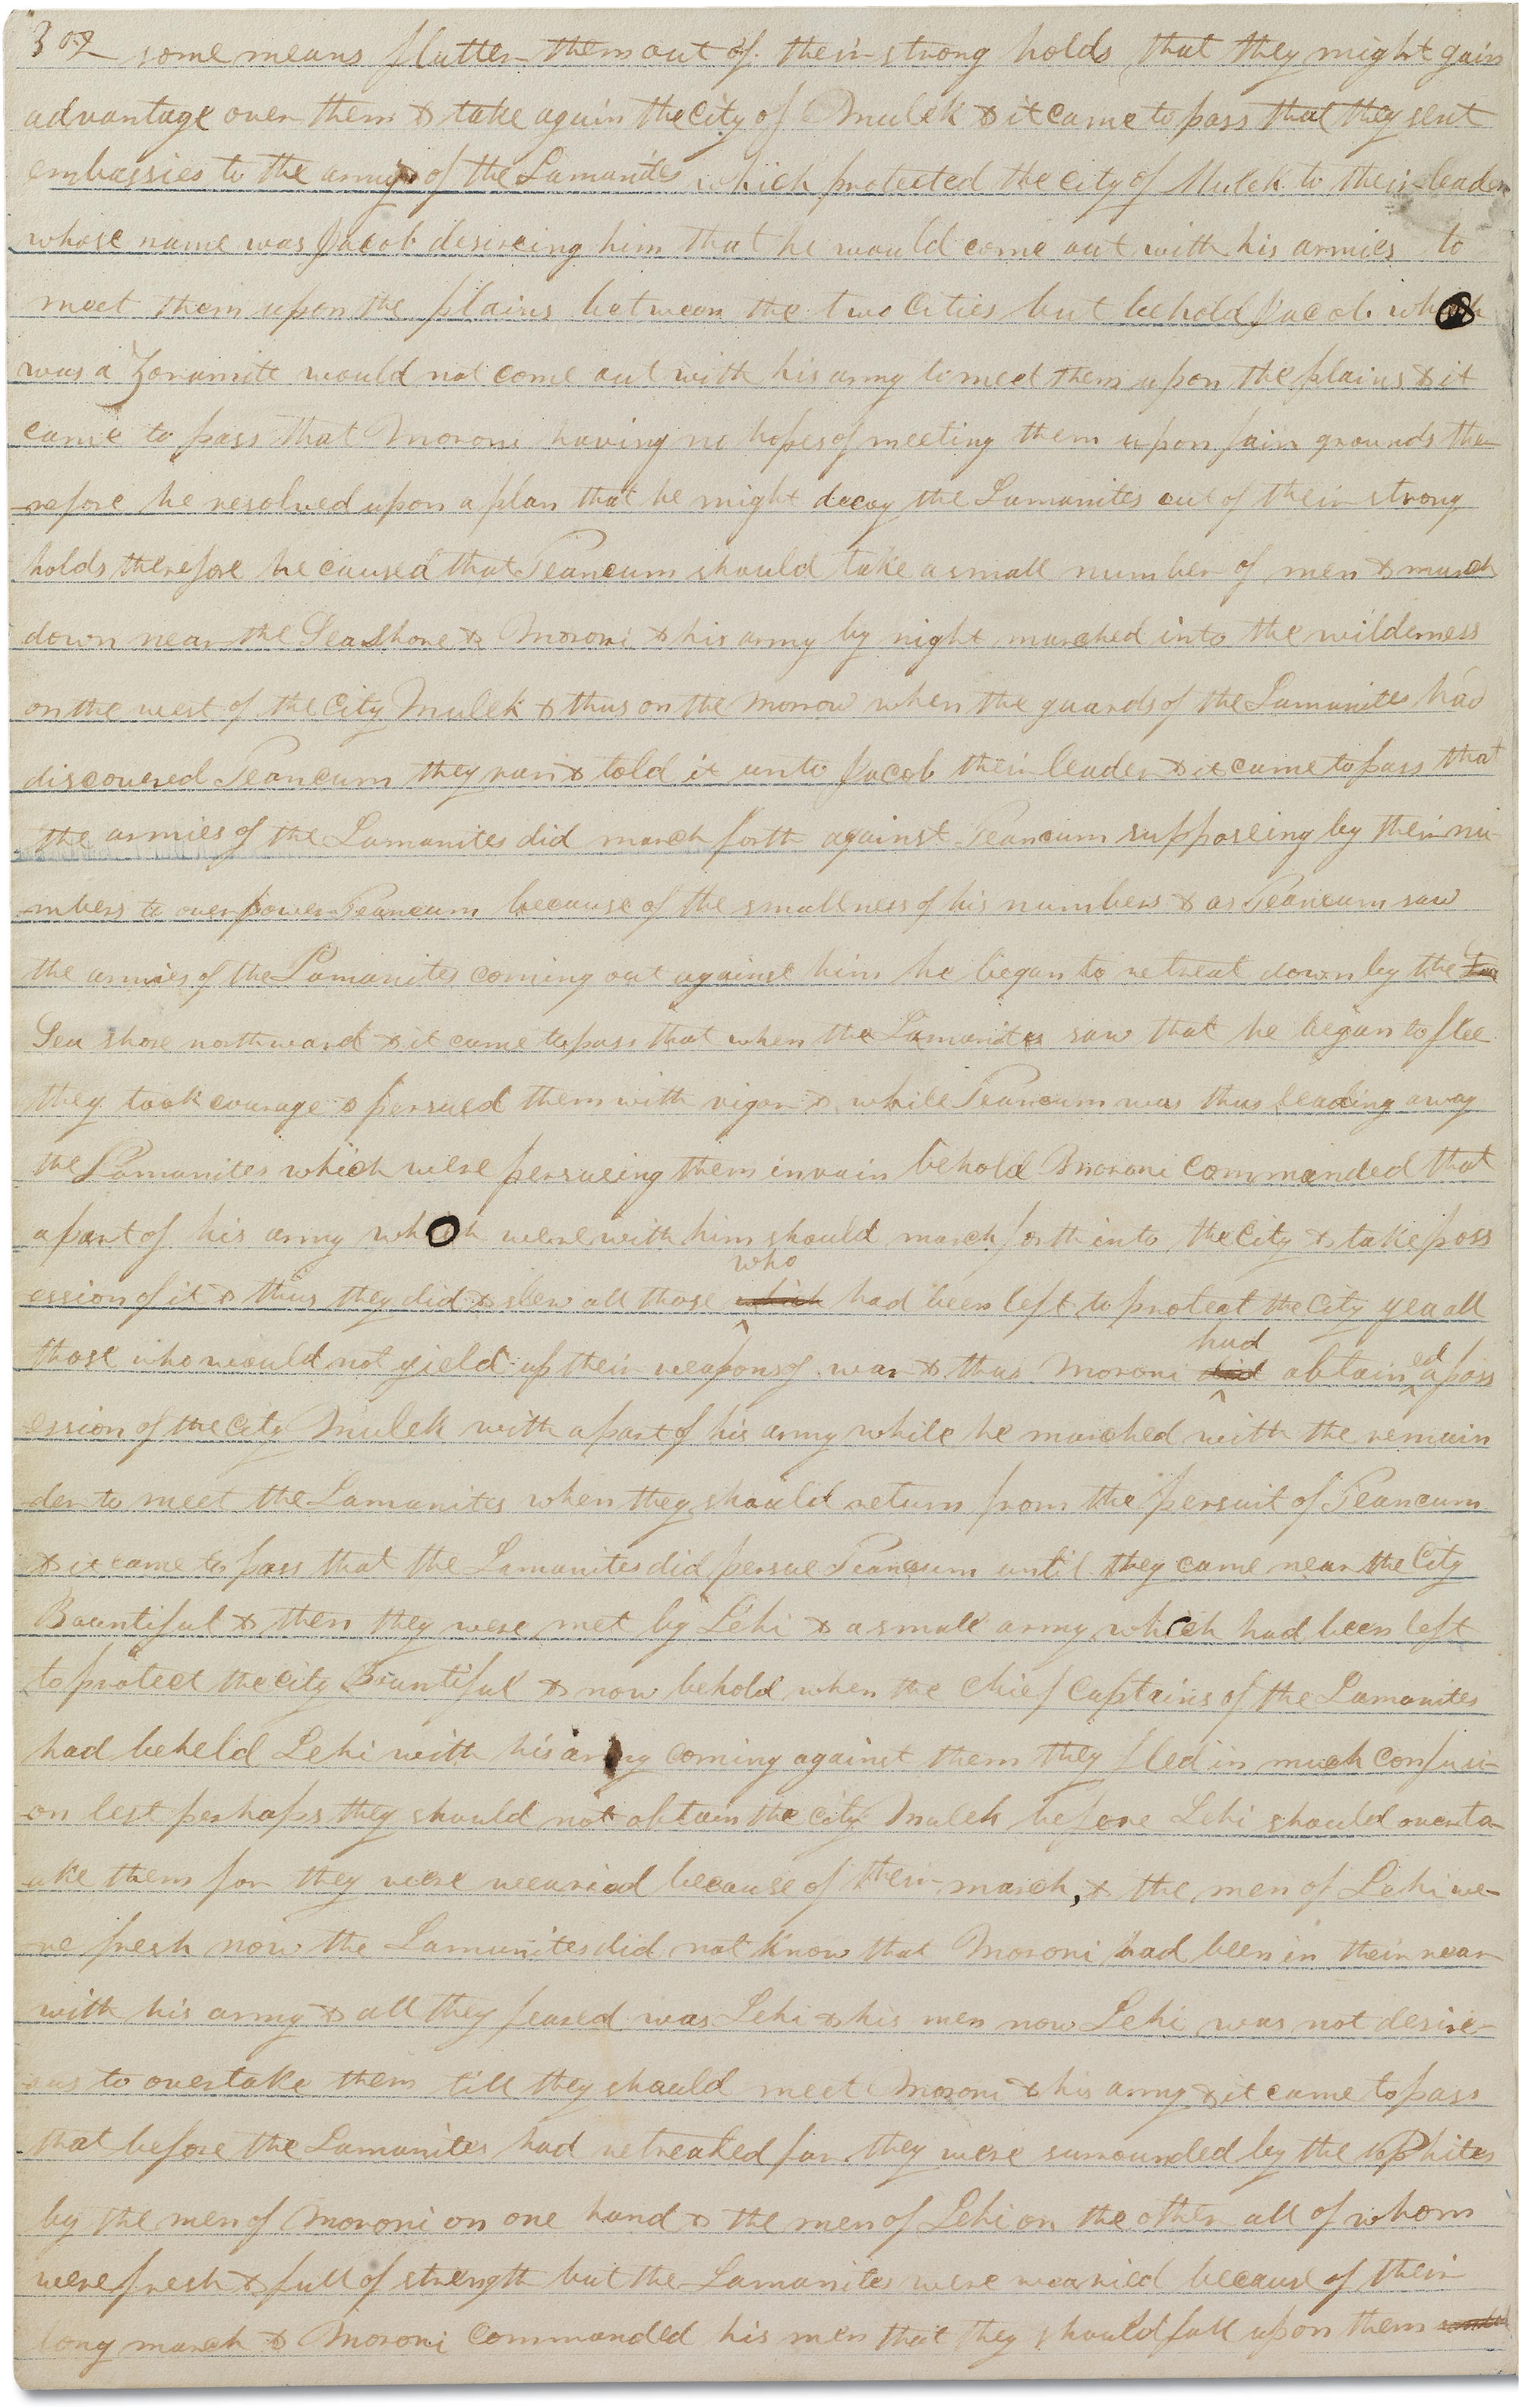 302 some means flatter them out of their strong holds that they might gain
advantage over them & take again the City of Mulek & it came to pass that they sent
embassies to the army of the Lamanites which protected the city of Mulek to their leader
whose name was Jacob desireing him that he would come out with his armies to
meet them upon the plains between the two Cities but behold Jacob who
was a Zoramite would not come out with his army to meet them upon the plains & it
came to pass that Moroni having no hopes of meeting them upon fair grounds the-
-refore he resolved upon a plan that he might decoy the Lamanites out of their strong
holds therefore he caused that Teancum should take a small number of men & march
down near the Sea Shore & Moroni & his army by night marched into the wilderness
on the west of the City Mulek & thus on the morrow when the guards of the Lamanites had
discovered Teancum they ran & told it unto Jacob their leader & it came to pass that
the armies of the Lamanites did march forth against Teancum supposeing by their nu-
-mbers to overpower Teancum because of the smallness of his numbers & as Teancum saw
the armies of the Lamanites coming out against him he began to retreat down by the Sea
Sea shore northward & it came to pass that when the Lamanites saw that he began to flee
they took courage & persued them with vigor & while Teancum was thus leading away
the Lamanites which were persueing them in vain behold Moroni commanded that
a part of his army who were with him should march forth into the City & take poss
ession of it & thus they did & slew all those which who had been left to protect the City yea all
those who would not yield up their weapons of war & thus Moroni did had obtained a poss
ession of the City Mulek with a part of his army while he marched with the remain
der to meet the Lamanites when they should return from the persuit of Teancum
& it came to pass that the Lamanites did persue Teancum until they came near the City
Bountiful & then they were met by Lehi & a small army which had been left
to protect the city Bountiful & now behold when the chief Captains of the Lamanites
had beheld Lehi with his army coming against them they fled in much confusi-
-on lest perhaps they should not obtain the city Mulek before Lehi should overta-
-ake them for they were wearied because of their march, & the men of Lehi we-
-re fresh now the Lamanites did not know that Moroni had been in their rear
with his army & all they feared was Lehi & his men now Lehi was not desire-
-ous to overtake them till they should meet Moroni & his army & it came to pass
that before the Lamanites had retreated far they were surrounded by the Nephites
by the men of Moroni on one hand & the men of Lehi on the other all of whom
were fresh & full of strength but the Lamanites were wearied because of their
long march & Moroni commanded his men that they should fall upon them